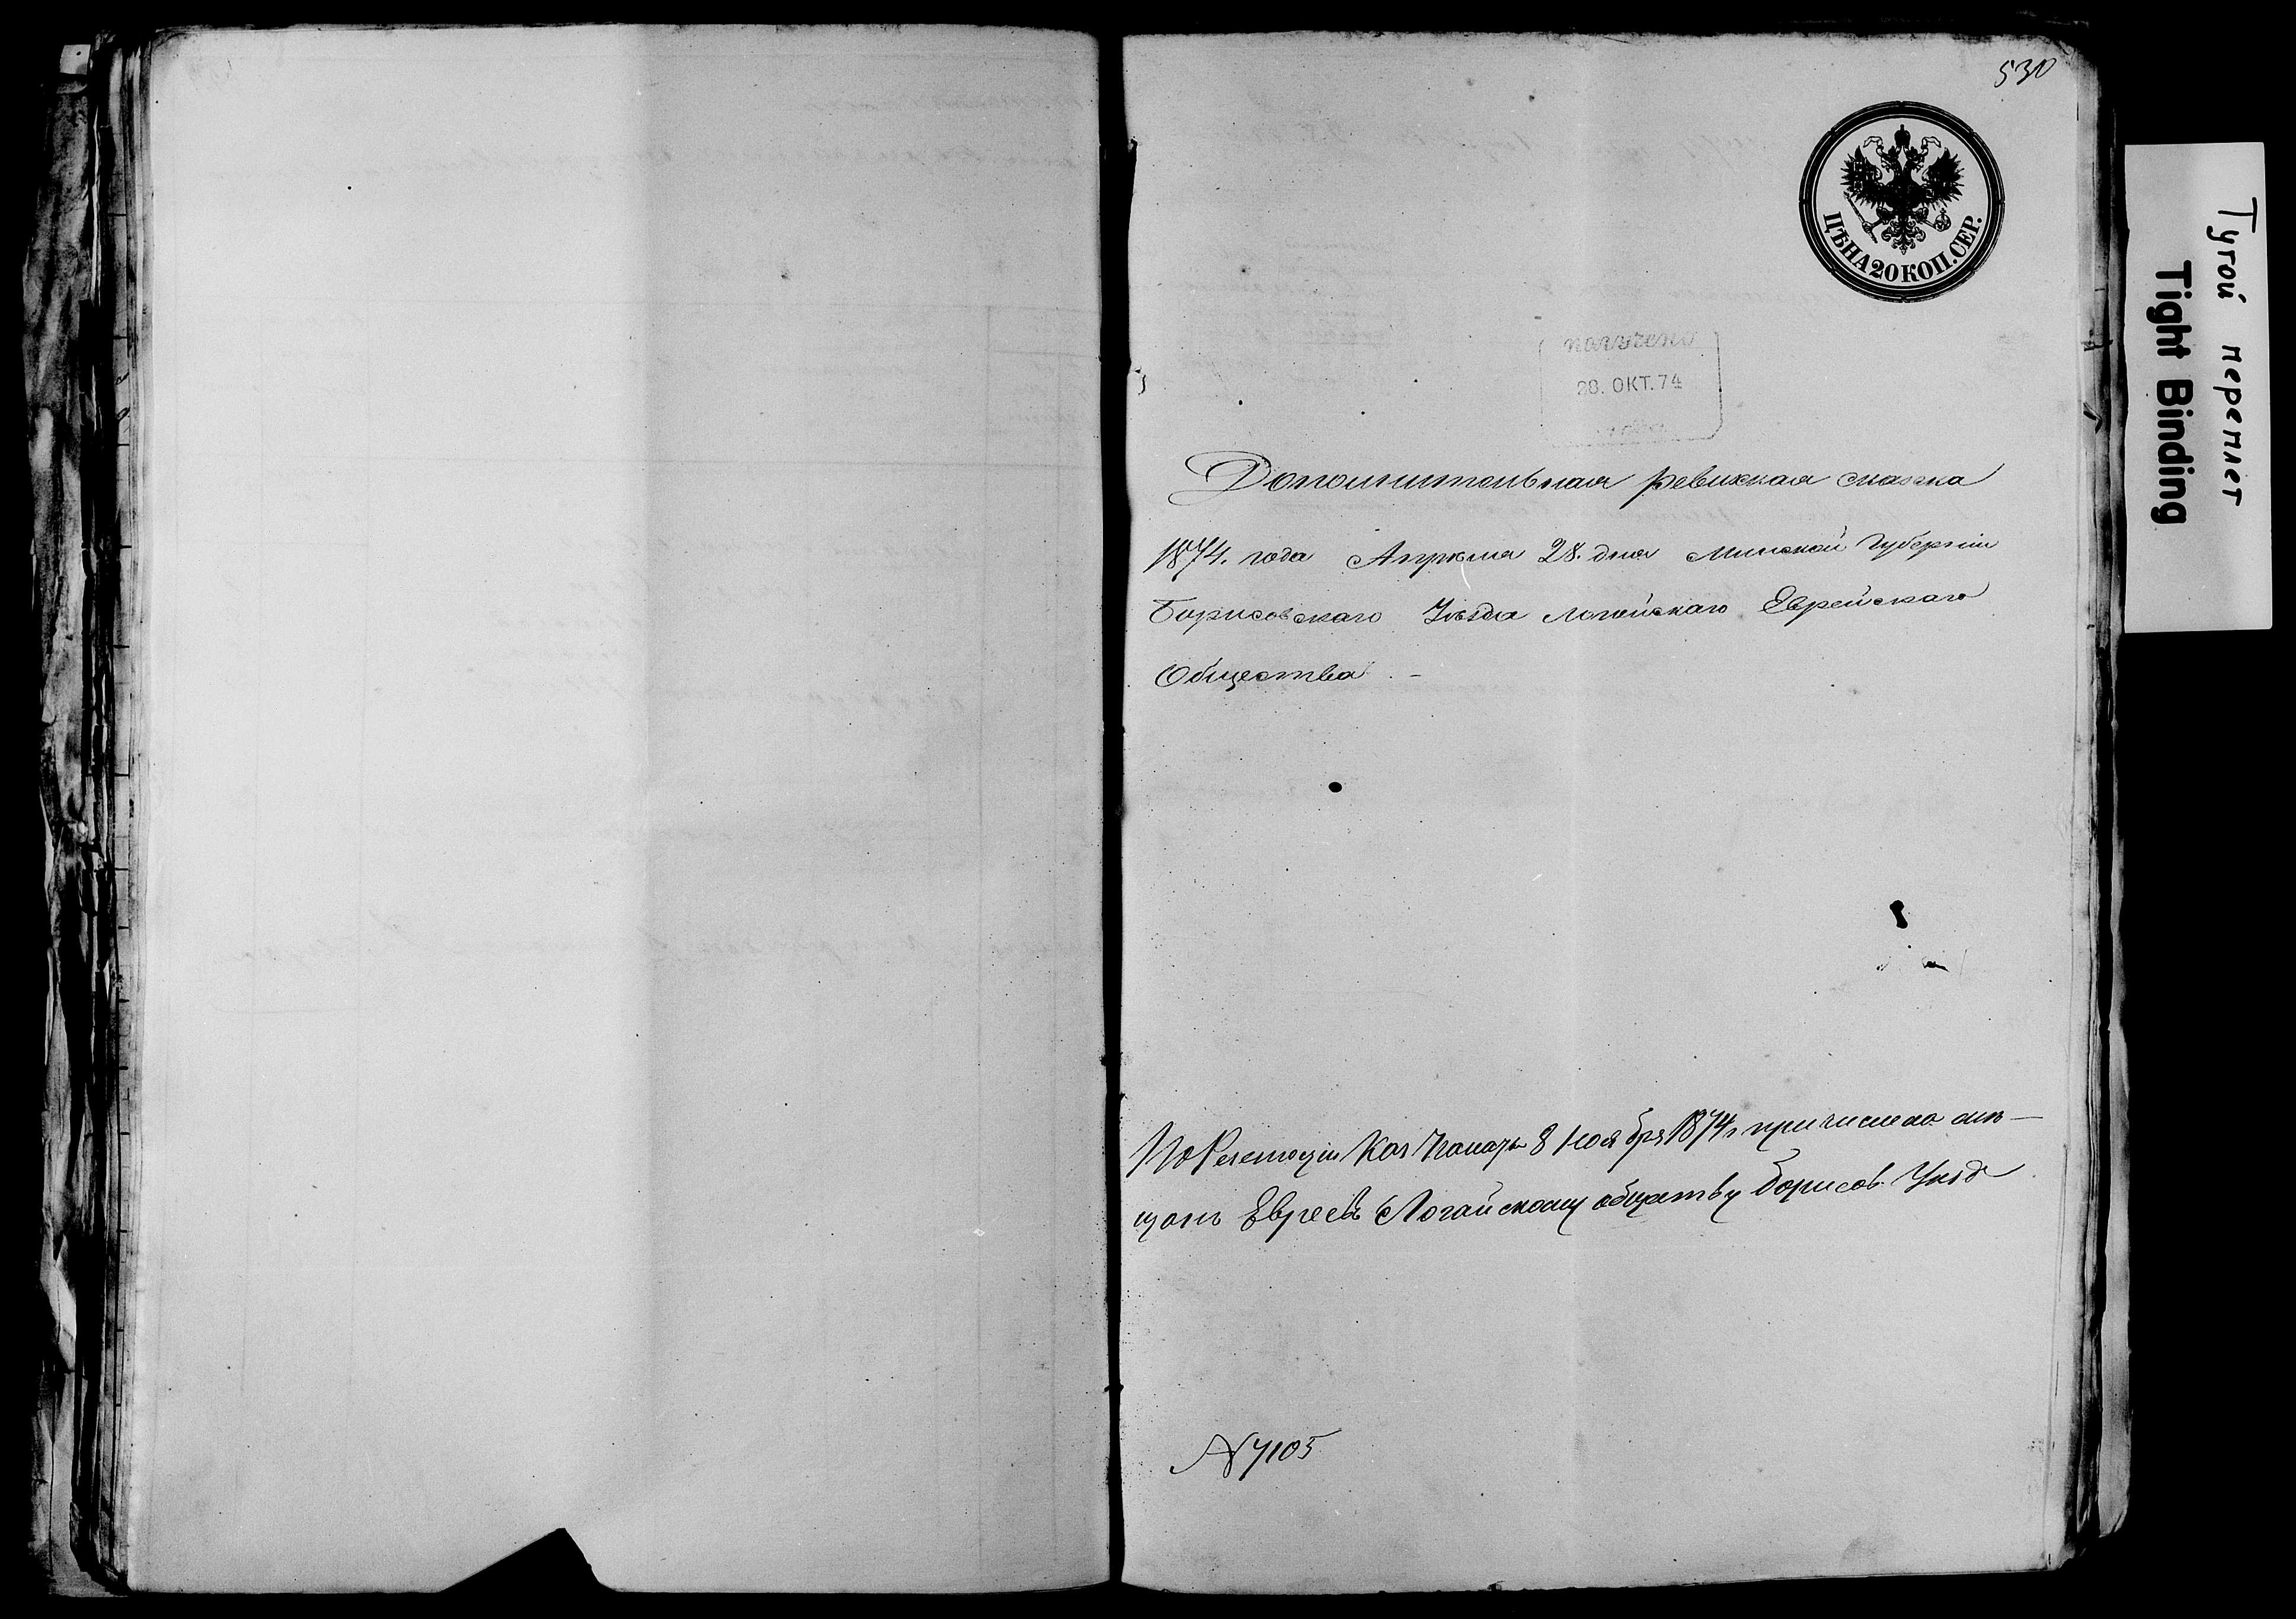 530
ЦѢНА 20 КОП. СЕР.
получено
28. ОКТ. 74
Дополнительная ревизская сказка
1874. года Апрѣля 28. дня Минской Губерніи
Борисовскаго Уѣзда Логойскаго Еврейскаго
Общества. –
По Резолюціи Каз Палаты 8 Ноября 1874 г причислена мѣ-
щанъ Евреевъ Логойскому обществу Борисов. Уѣзд
N 7105
Тугой переплет
Tight Binding